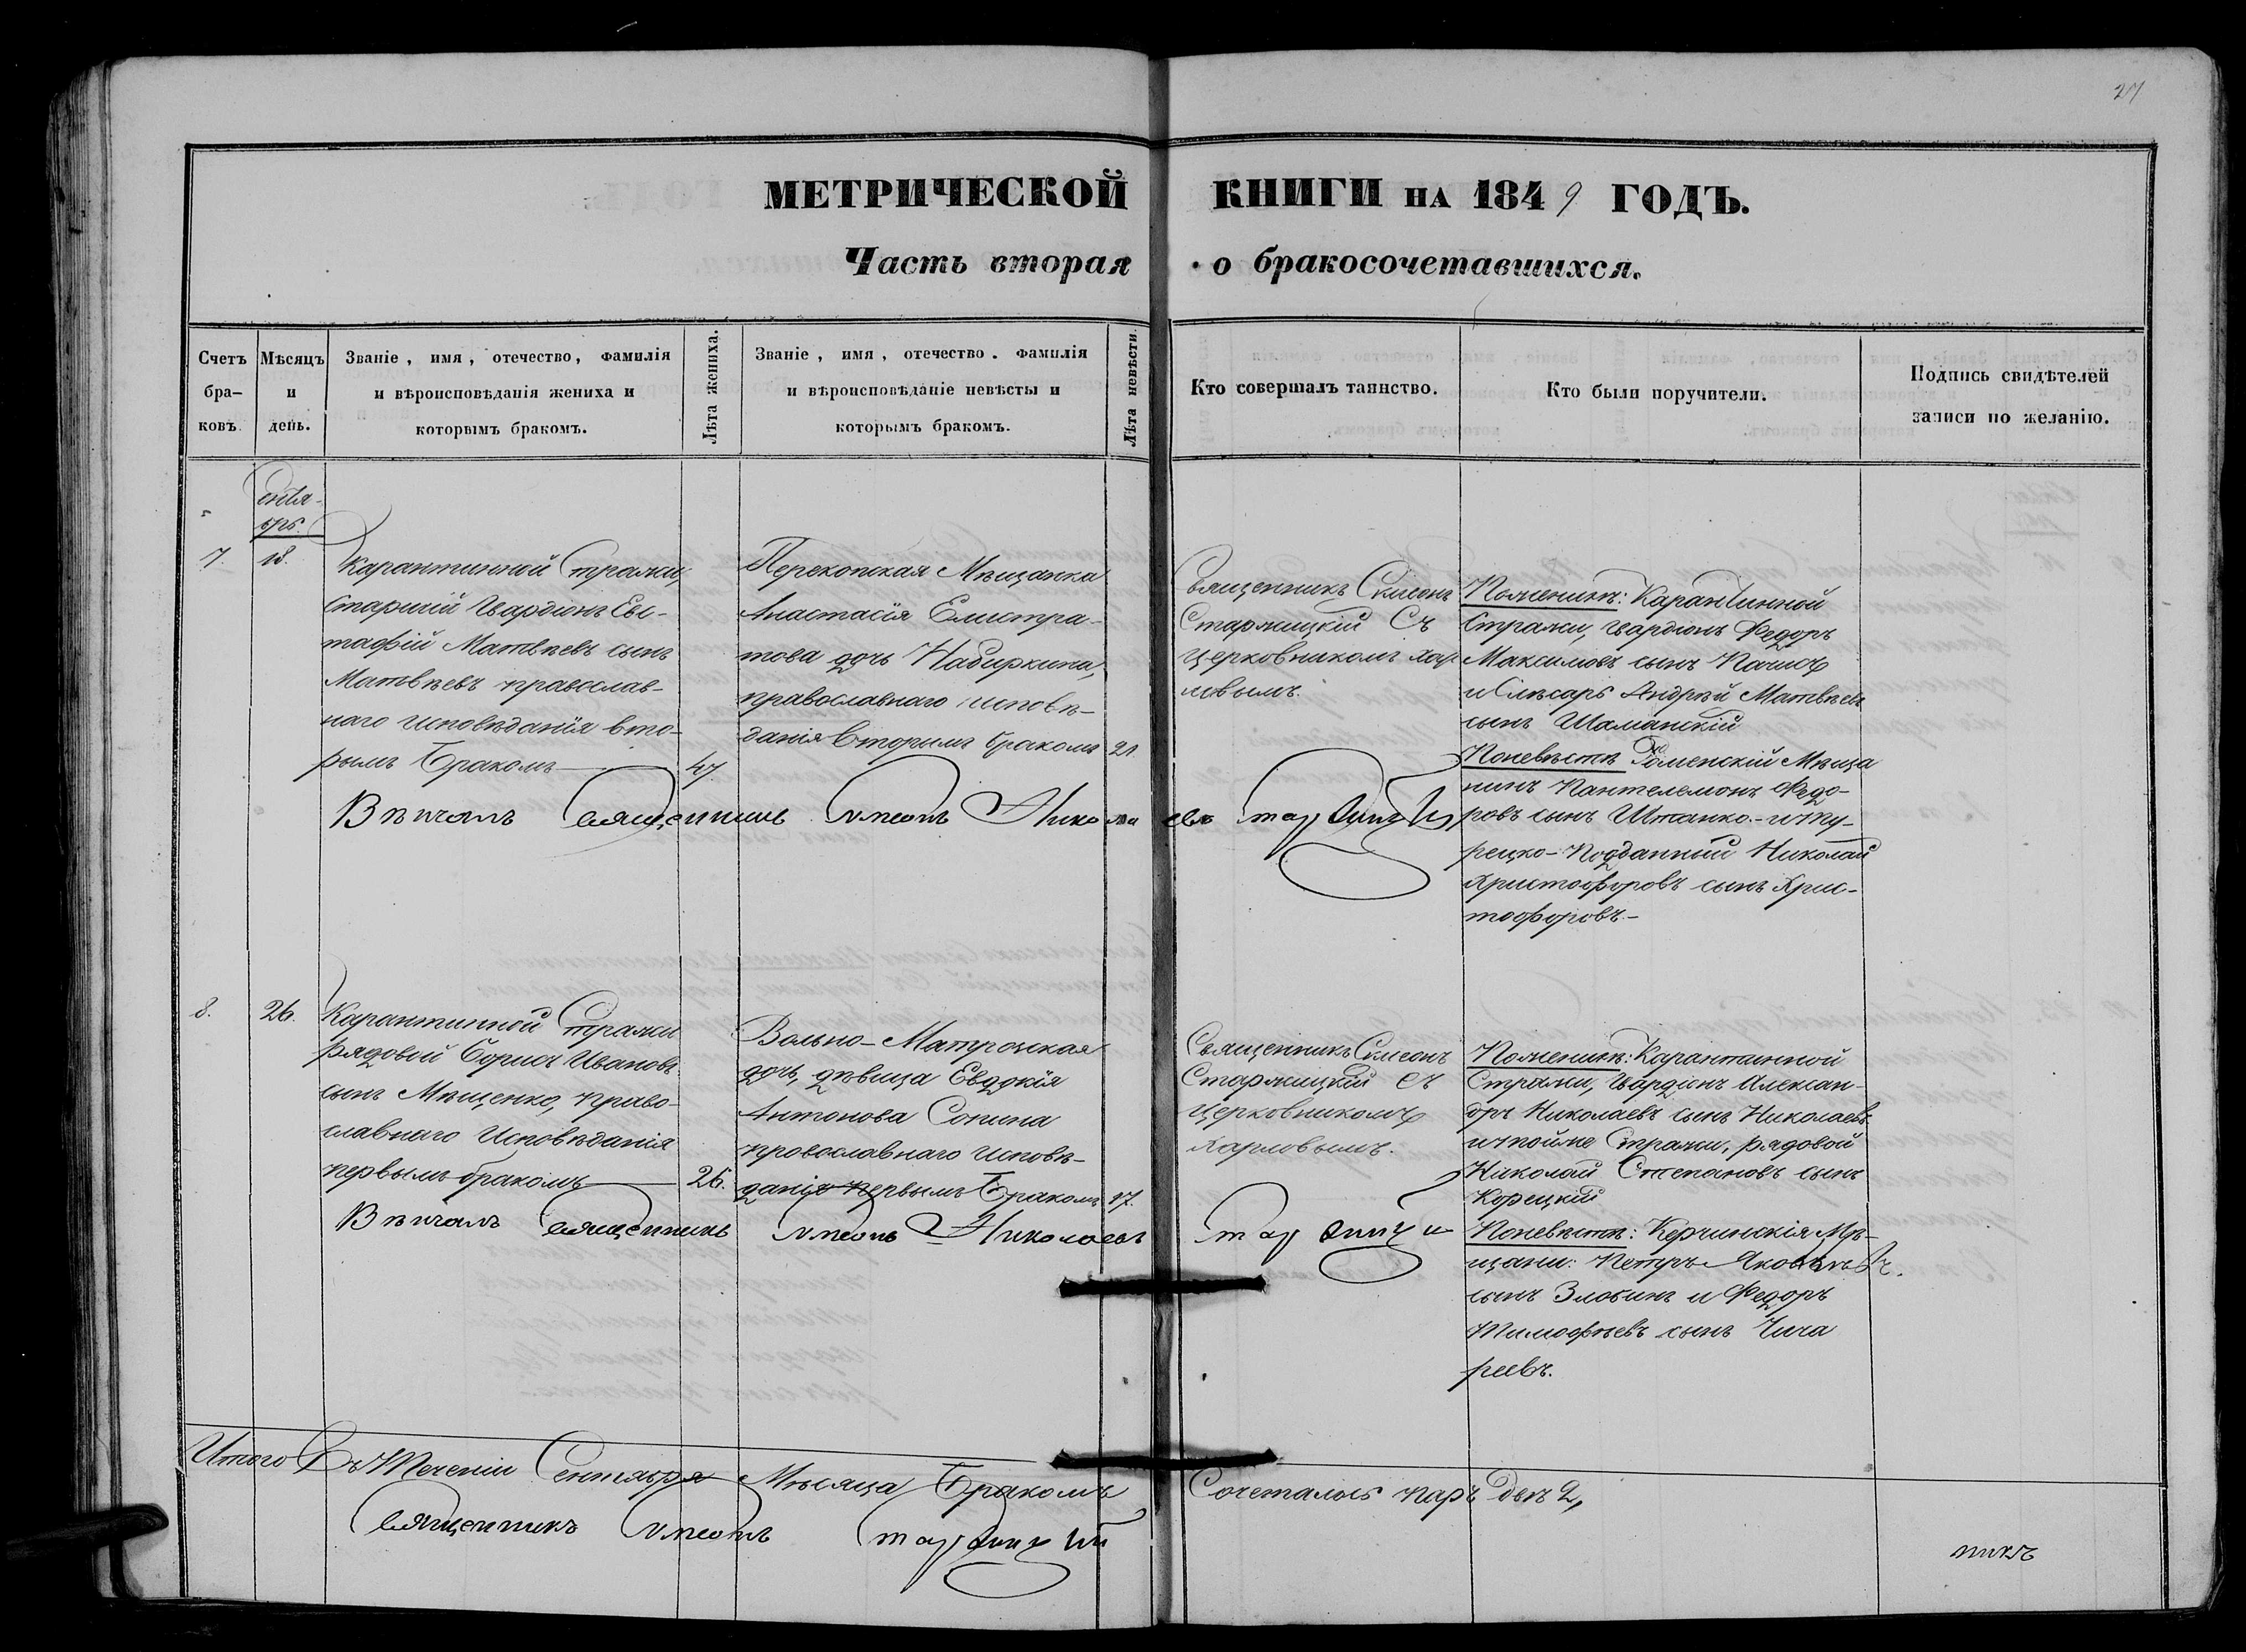 27
МЕТРИЧЕСКОЙ КНИГИ НА 1849 ГОДЪ.
Часть вторая о бракосочетавшихся.
Счетъ
бра-
ковъ.
Мѣсяцъ
и
день.
Званіе, имя, отечество, фамилія
и вѣроисповѣданія жениха и
которымъ бракомъ.
Лѣта жениха.
Званіе, имя, отечество. фамилія
и вѣроисповѣданіе невѣсты и
которымъ бракомъ.
Лѣта невѣсти.
Кто совершалъ таинство.
Кто были поручители.
Подпись свидѣтелей
записи по желанію.
Сентя-
брь.
7.
18.
Карантинной Стражи
старшій Гвардіонъ Евс-
тафій Матвѣевъ сынъ
Матвѣевъ православ-
наго исповѣданія вто-
рымъ Бракомъ
47.
Перекопская Мѣщанка
Анастасія Елистра-
това дочь Набиркина,
православнаго исповѣ-
данія вторымъ бракомъ
21.
Священникъ Симеонъ
Старжицкій Съ
церковникомъ Хар-
ловымъ.
Поженихѣ: Карантинной
Стражи, Гвардіонъ Федоръ
Максимовъ сынъ
и Слѣсарь Андрѣй Матвѣевъ
сынъ Шаманскій
Поневѣстѣ Роменскій Мѣща
нинъ Пантелемонъ Федо-
ровъ сынъ Штанко.- иту-
рецко-Подданный Николай
Христофоровъ сынъ Хрис-
тофоровъ.-
Вѣнчалъ Священникъ Симеонъ Николаевъ Старжицкій
8.
26.
Карантинной Стражи
рядовой Борисъ Ивановъ
сынъ Мѣщенко, право-
славнаго Исповѣданія
первымъ бракомъ
26.
Вольно-Матрозская
дочь, дѣвица Евдокія
Антонова Сопина
провославнаго исповѣ-
данія первымъ Бракомъ
17.
Священникъ Симеонъ
Старжицкій съ
церковникомъ
Харловымъ.
Поженихѣ: Карантинной
Стражи, Гвардіонъ Алексан-
дръ Николаевъ сынъ Николаевъ
итойже Стражи, рядовой
Николай Степановъ сынъ
Корецкій
Поневѣстѣ: Керчинскія Мѣ-
щани: Петръ Яковлевъ
сынъ Злобинъ и Федоръ
Тимофѣевъ сынъ Чича
ревъ.
Вѣнчалъ Священникъ Симеонъ Николаевъ Старжицкій
Итого Въ Теченіи Сентября Мѣсяца Бракомъ Сочеталось паръ двѣ 2,
Священникъ Симеонъ Старжицкій
никъ